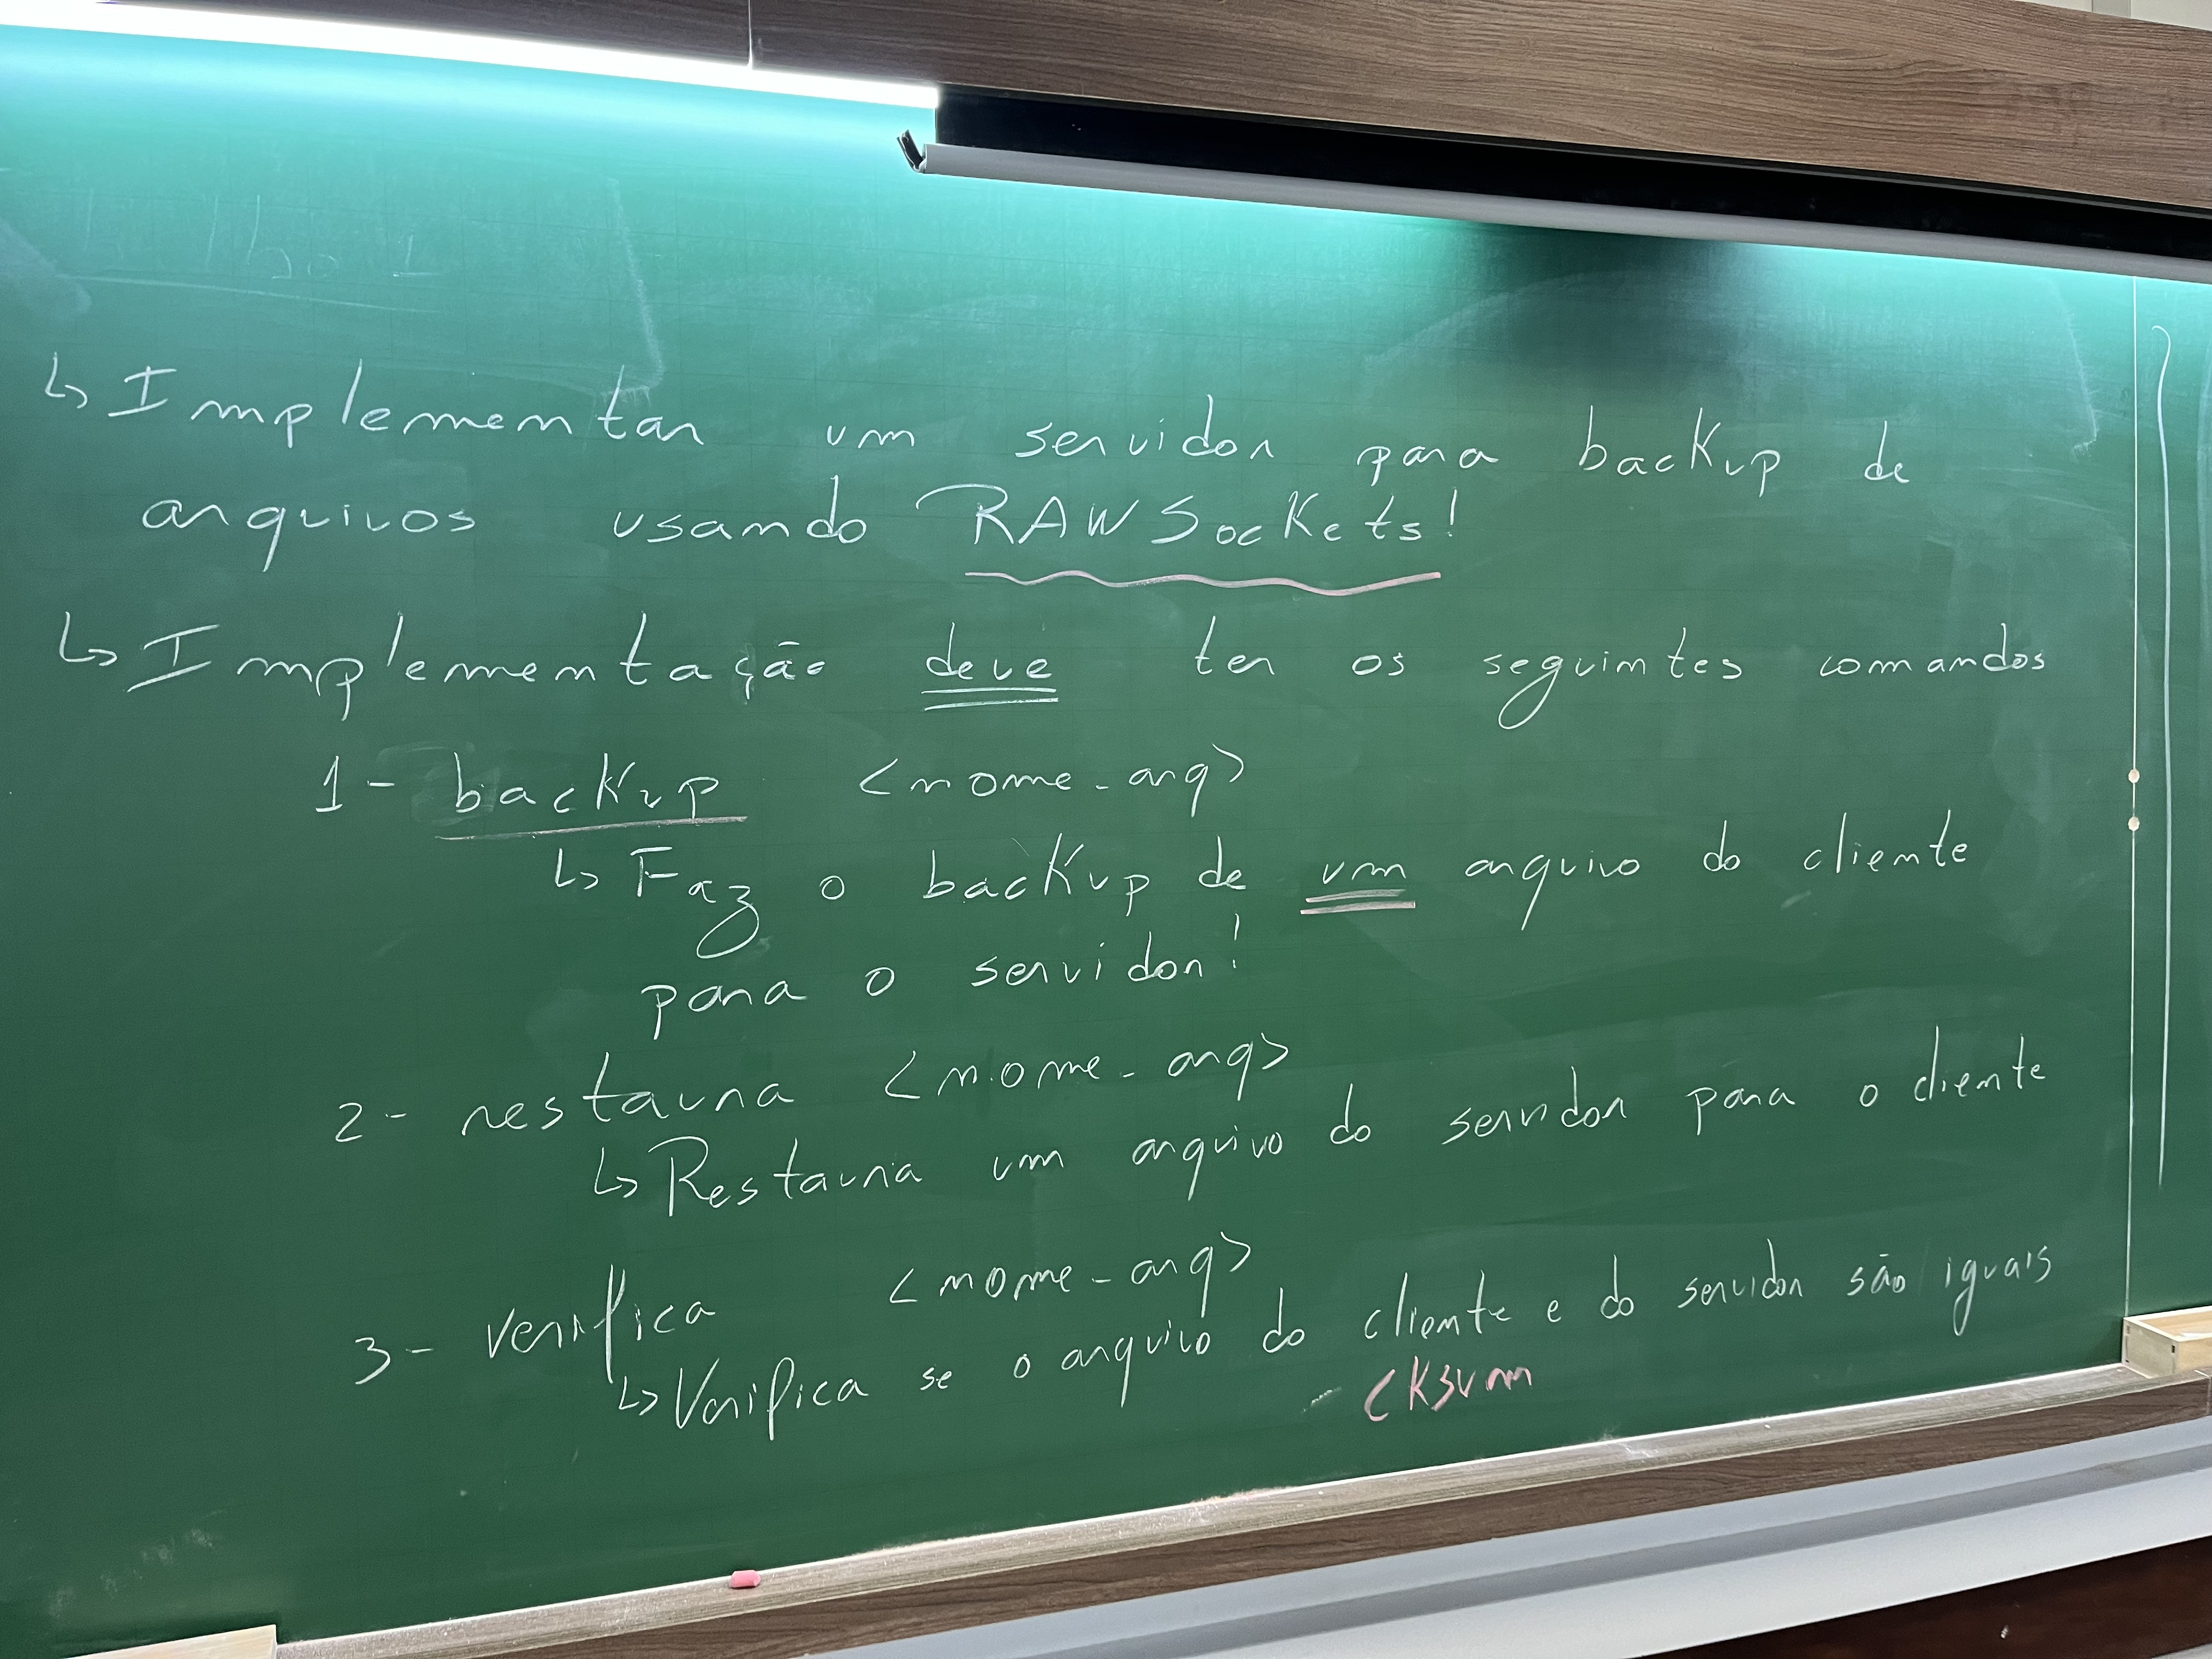 ↳ Implementar um servidor para backup de
arquivos usando RAWSockets!
↳ Implementação deve ter os seguintes comandos
1- backup <nome_arq>
↳ Faz o backup de um arquivo do cliente
para o servidor!
2- restaura <nome_arq>
↳ Restaura um arquivo do servidor para o cliente
3- verifica <nome_arq>
↳ Verifica se o arquivo do cliente e do servidor são iguais
- cksum